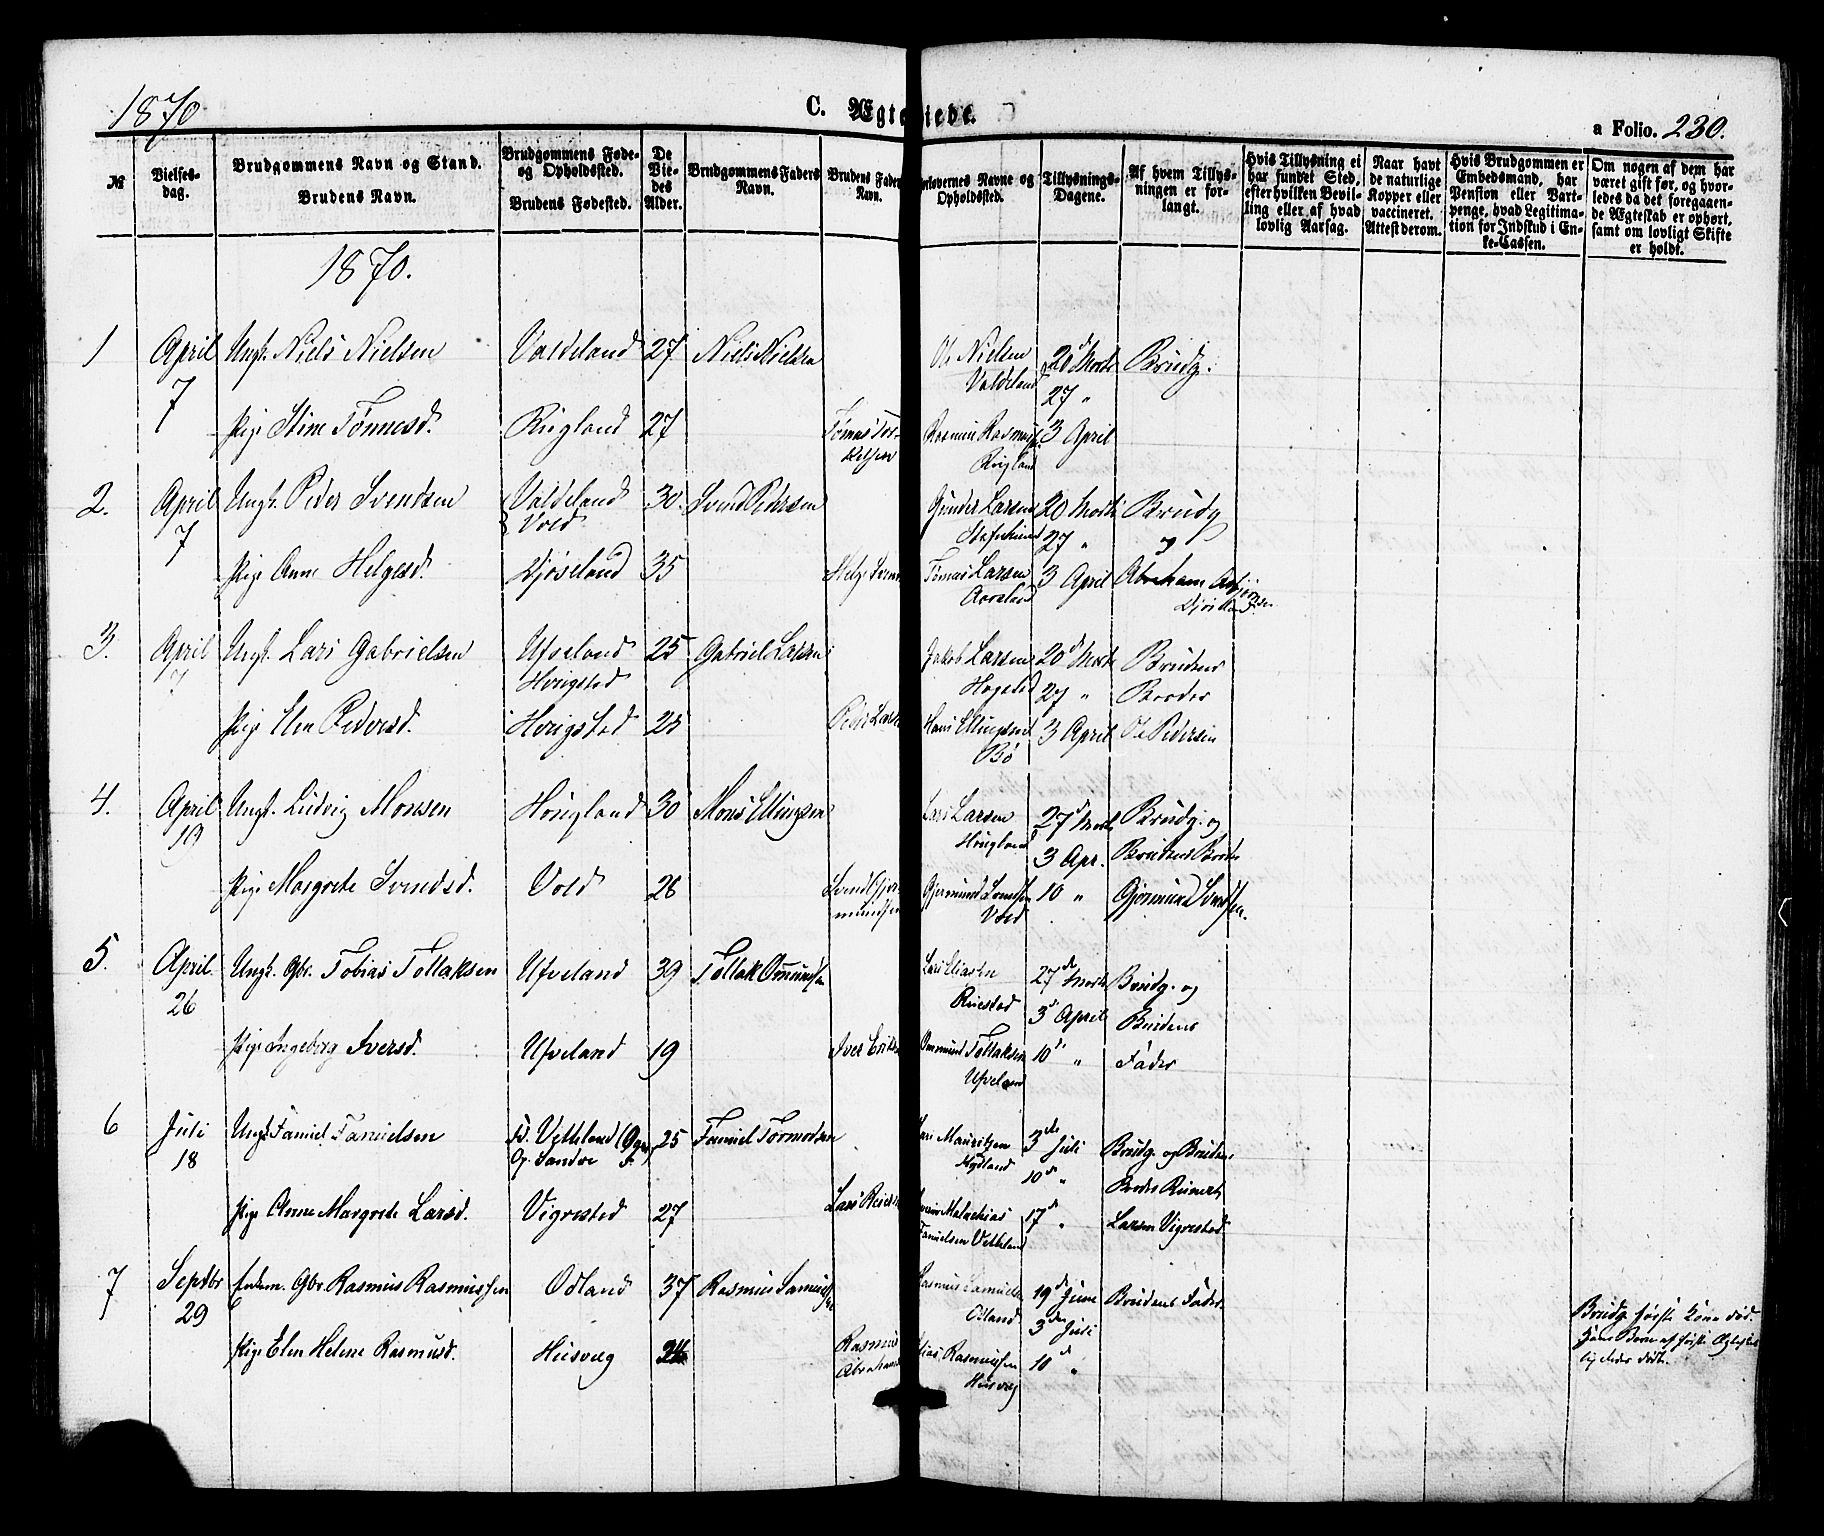 1870
C. Ægteviede.
a Folio. 230.
№
Vielses-
dag.
Brudgommens Navn og Stand.
Brudens Navn.
Brudgommens Føde-
og Opholdssted.
Brudens Fødested.
De
Vie-
des
Alder.
Brudgommens Faders
Navn.
Brudens Faders
Navn.
Forlovernes Navne og
Opholdssted.
Tillysnings-
Dagene.
Af hvem Tillys-
ningen er for-
langt.
Hvis Tillysning ei
har fundet Sted,
efter hvilken Bevil-
ling eller af hvad
lovlig Aarsag.
Naar havt
de naturlige
Kopper eller
vaccineret.
Attest derom.
Hvis Brudgommen er
Embedsmand, har
Pension eller Vart-
penge, hvad Legitima-
tion for Indskud i En-
ke-Cassen.
Om nogen af dem har
været gift før, og hvor-
ledes da det foregaaen-
de Ægteskab er ophørt,
samt om lovligt Skifte
er holdt.
1870.
1 April 7 Ungk. Niels Nielsen Valdeland 27 Niels Nielsen Ole Nielsen Valdeland 20d Marts 27 " Brudg.
Pige Stine Tønnesd. Rugland 27 Rasmus Rasmuss. 3 April
2. April 7 Ungk. Peder Svendsen Valdeland Vold 30. Svend Pedersen Gunder Larsen 20 Marts 27 " Brudg og
Pige Anne Helgesd. 35 Helge Svends Tømas Larsen 3 April Abraham
3. April 7 Ungk. Lars Gabrielsen Ufveland Hvrigstad 25 Gabriel Larsen Jakob Larsen 20d Marts 27 " Brudens Broder
Pige Elen Pedersd. Hvrigstad 25 Peder Larse Hans Ellingsen Bø 3 April Ole Pedersen
4. April 19 Ungk. Ludvig Monsen Hougland 30 Mons Ellingsen Lars Larsen Hougland 27d Marts 3 Apr. Brudg. og Brudens Broder
Pige Margrete Svendsd. Vold 26 Svend Gjer- mundsen Gjermund Svendsen Vold 10 " Gjermund Svendsen.
5. April 26 Ungk. Gbr. Tobias Tollaksen Ufveland 39 Tollak Omundsen Lars Eliasen 27de Marts 3d April Brudg. og Brudens
Pige Ingeborg Iversd. Ufveland 19 Iver Eriks Ommund Tollaksen Ufveland 10d " Fader
6 Juli 18 Ungk. Tamiel Tamielsen Fd. Vetteland (Ogne) Op. Sandve 25 Tamiel Tormodsen Lars Mauritzen 3de Juli 10d " Brudg. og Brudens Broder Reinert
Pige Anne Margrete Larsd. Vigrestad 27 Lars Reiers Malachias Tamielsen Vetteland 17d " Larsen Vigrestad
7 Septbr 29 Enkem. Gbr. Rasmus Rasmussen Odland 37 Rasmus Samuelsen Rasmus Samuels Odland 19d Juni 3de Juli Brudens Fader. Brudg. første Kone død.
Pige Elen Helene Rasmusd. Husvæg 24 Rasmus Abrahams Elias Rasmussen Husvæg 10d "